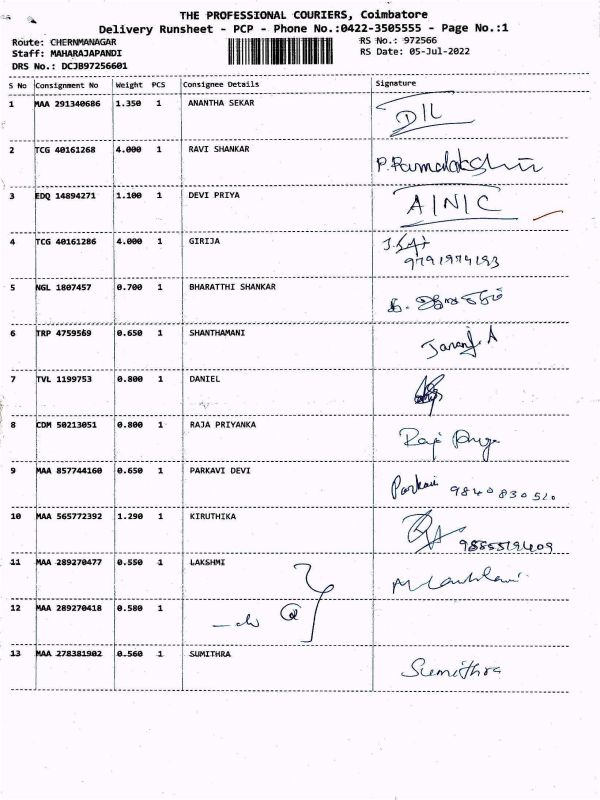 THE PROFESSIONAL COURIERS, Coimbatore
Delivery Runsheet - PCP - Phone No.:0422-3505555 - Page No.:1
Route: CHERNMANAGAR
Staff: MAHARAJAPANDI
DRS No.: DCJB97256601
RS No.: 972566
RS Date: 05-Jul-2022
S No Consignment No Weight PCS Consignee Details Signature
1 MAA 291340686 1.350 1 ANANTHA SEKAR
2 TCG 40161268 4.000 1 RAVI SHANKAR
3 EDQ 14894271 1.100 1 DEVI PRIYA A/N/C
4 TCG 40161286 4.000 1 GIRIJA
9791974193
5 NGL 1807457 0.700 1 BHARATTHI SHANKAR
6 TRP 4759569 0.650 1 SHANTHAMANI
7 TVL 1199753 0.800 1 DANIEL
8 CDM 50213051 0.800 1 RAJA PRIYANKA
9 MAA 857744160 0.650 1 PARKAVI DEVI Parkavi 9840830520
10 MAA 565772392 1.290 1 KIRUTHIKA
11 MAA 289270477 0.550 1 LAKSHMI
12 MAA 289270418 0.580 1
13 MAA 278381902 0.560 1 SUMITHRA Sumithra